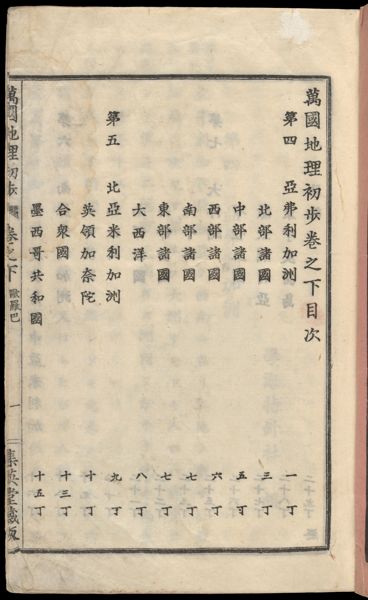 萬國地理初歩卷之下目次
第四　亞弗利加洲　一丁
北部諸國　三丁
中部諸國　五丁
西部諸國　六丁
南部諸國　七丁
東部諸國　七丁
大西洋國　八丁
第五　北亞米利加洲　九丁
英領加奈陀　十丁
合衆國　十三丁
墨西哥共和國　十五丁
萬國地理初歩　卷之下　歐羅巴　一　集英堂藏版